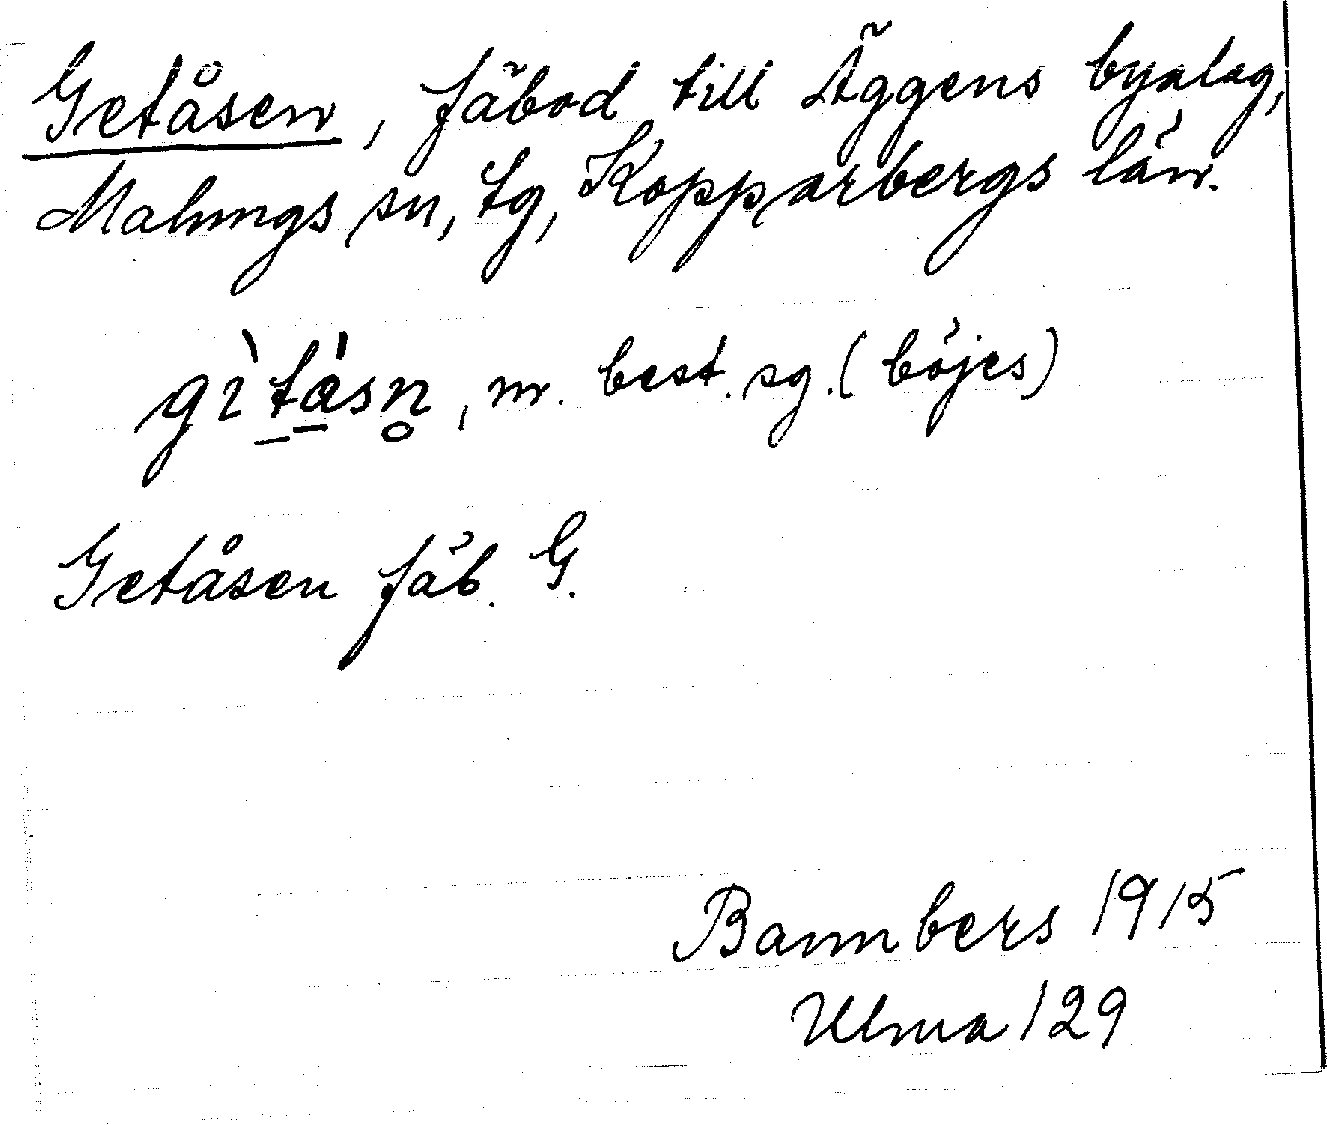 Getåsen, fäbod till Äggens byalag,
Malungs sn, tg, Kopparbergs län.
gìtásn̥, m. best. sg. (böjes)
Getåsen fäb. G.
Bannbers 1915
Ulma 129